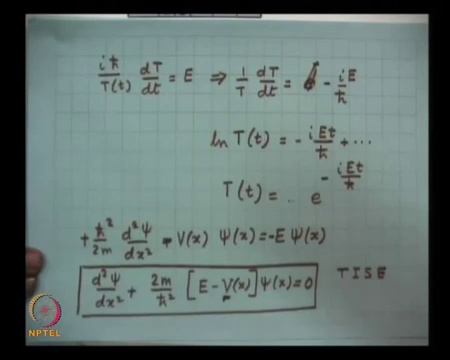 iħ/T(t) dT/dt = E ⇒ 1/T dT/dt = - iE/ħ
ln T(t) = - iEt/ħ + ...
T(t) = e^(-iEt/ħ)
+ ħ²/2m d²Ψ/dx² - V(x) Ψ(x) = -E Ψ(x)
d²Ψ/dx² + 2m/ħ² [E - V(x)] Ψ(x) = 0 TISE
NPTEL